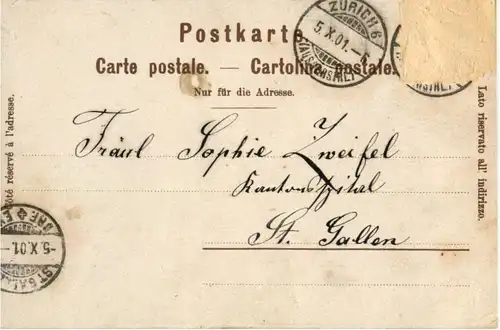 Postkarte.
Carte postale. — Cartolina postale.
Nur für die Adresse.
ZÜRICH 6
5.X.01.-6
Fräul Sophie Zweifel
Kantonsspital
St. Gallen
Côté réservé à l'adresse.
Lato riservato all' indirizzo.
-5.X.01.-
ST GALL